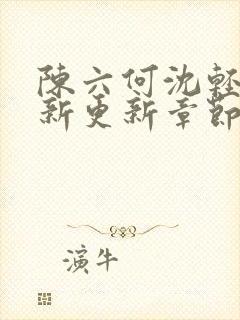 陳六何沈輕
新更新章節
演牛